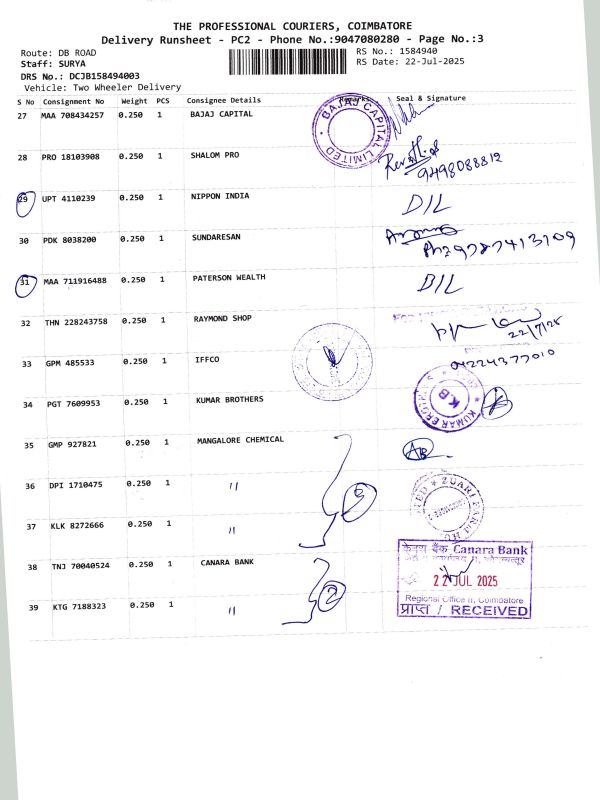 THE PROFESSIONAL COURIERS, COIMBATORE
Delivery Runsheet - PC2 - Phone No.:9047080280 - Page No.:3
Route: DB ROAD
RS No.: 1584940
Staff: SURYA
RS Date: 22-Jul-2025
DRS No.: DCJB158494003
Vehicle: Two Wheeler Delivery
S No Consignment No Weight PCS Consignee Details Remarks Seal & Signature
27 MAA 708434257 0.250 1 BAJAJ CAPITAL
BAJAJ CAPITAL LIMITED
28 PRO 18103908 0.250 1 SHALOM PRO
9498088812
29 UPT 4110239 0.250 1 NIPPON INDIA D/L
30 PDK 8038200 0.250 1 SUNDARESAN
31 MAA 711916488 0.250 1 PATERSON WEALTH D/L
32 THN 228243758 0.250 1 RAYMOND SHOP
22/7/25
33 GPM 485533 0.250 1 IFFCO
04224377010
34 PGT 7609953 0.250 1 KUMAR BROTHERS
KUMAR BROTHERS
KB
35 GMP 927821 0.250 1 MANGALORE CHEMICAL
36 DPI 1710475 0.250 1 "
3
37 KLK 8272666 0.250 1 "
38 TNJ 70040524 0.250 1 CANARA BANK
केनरा बैंक Canara Bank
22 JUL 2025
2
39 KTG 7188323 0.250 1 "
Regional Office II, Coimbatore
प्राप्त / RECEIVED